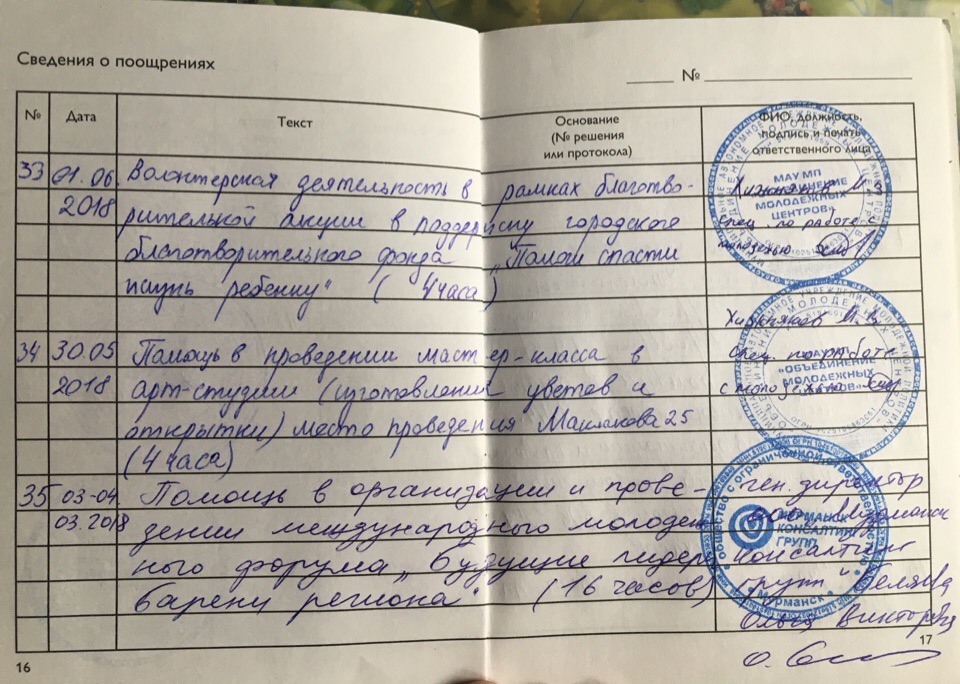 Сведения о поощрениях
№
№ Дата Текст Основание (№ решения или протокола) ФИО, должность, подпись и печать ответственного лица
33 01.06 2018
Волонтерская деятельность в рамках благотво-
рительной акции в поддержку городского
благотворительного фонда „Помоги спасти
жизнь ребенку" (4 часа)
спец. по работе с
молодежью
МАУ МП
«ОБЪЕДИНЕНИЕ
МОЛОДЕЖНЫХ
ЦЕНТРОВ»
34 30.05 2018
Помощь в проведении мастер-класса в
арт-студии (изготовление цветов и
открытки) место проведения Маклакова 25
(4 часа)
спец. по работе
с молодежью
МАУ МП
«ОБЪЕДИНЕНИЕ
МОЛОДЕЖНЫХ
ЦЕНТРОВ»
35 03-04 03.2018
Помощь в организации и прове-
дении международного молодеж
ного форума „Будущие лидеры
баренц региона" (16 часов)
ген. директор
ООО „Мурманск
консалтинг
групп" Беляева
Ольга Викторовна
МУРМАНСК
КОНСАЛТИНГ
ГРУПП
Мурманск
16
17